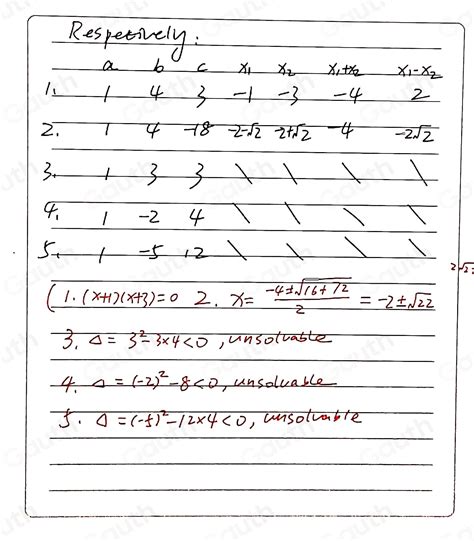 Respectively:
a b c x₁ x₂ x₁+x₂ x₁-x₂
1. 1 4 3 -1 -3 -4 2
2. 1 4 -18 -2-√2 -2+√2 -4 -2√2
3. 1 3 3 \ \ \ \
4. 1 -2 4 \ \ \ \
5. 1 -5 12 \ \ \ \
(1. (x+1)(x+3)=0 2. x= (-4±√(16+72))/2 = -2±√22
3. △ = 3²-3×4<0, unsolvable
4. △ = (-2)²-8<0, unsolvable
5. △ = (-5)²-12×4<0, unsolvable
Gauth